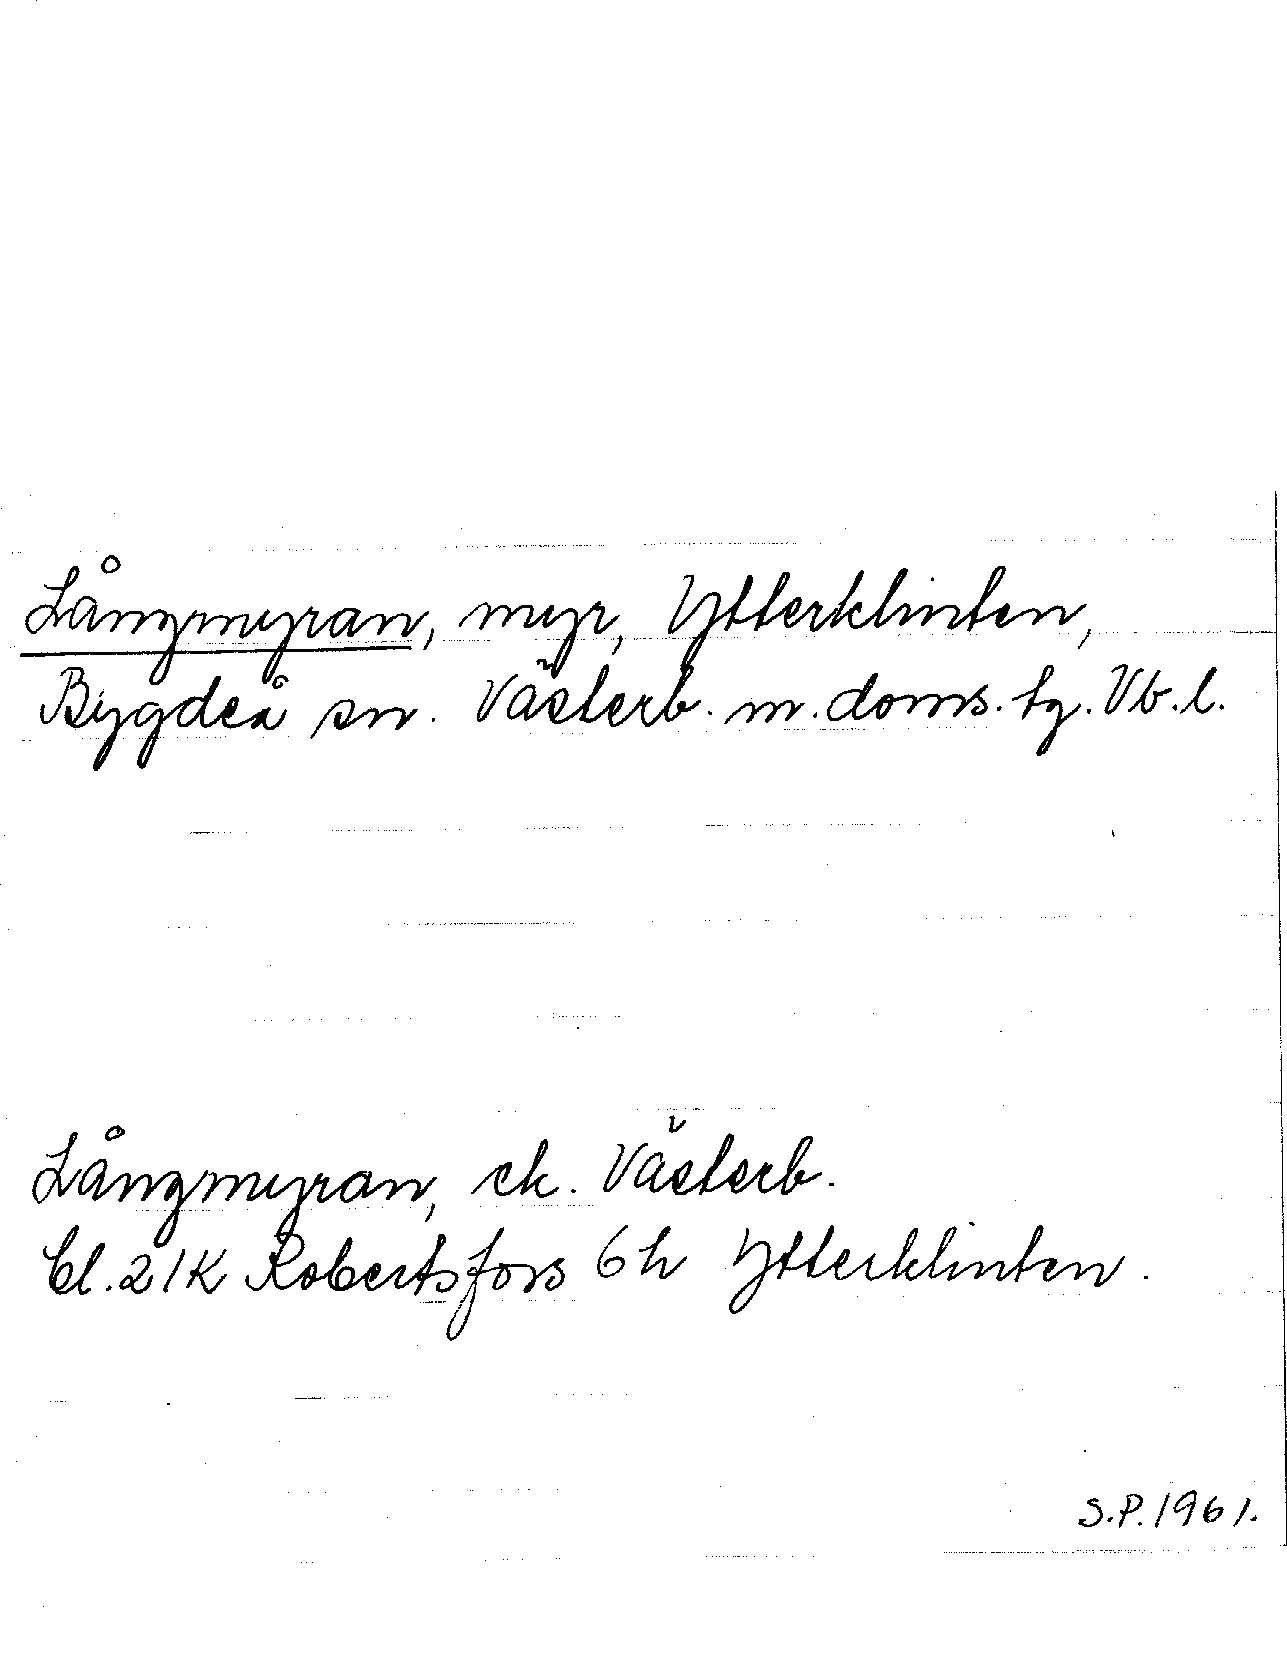 Långmyran, myr, Ytterklinten,
Bygdeå sn. Västerb. m. doms. tg. Vb. l.
Långmyran, ek. Västerb.
bl. 21K Robertsfors 6h Ytterklinten.
S.P. 1961.